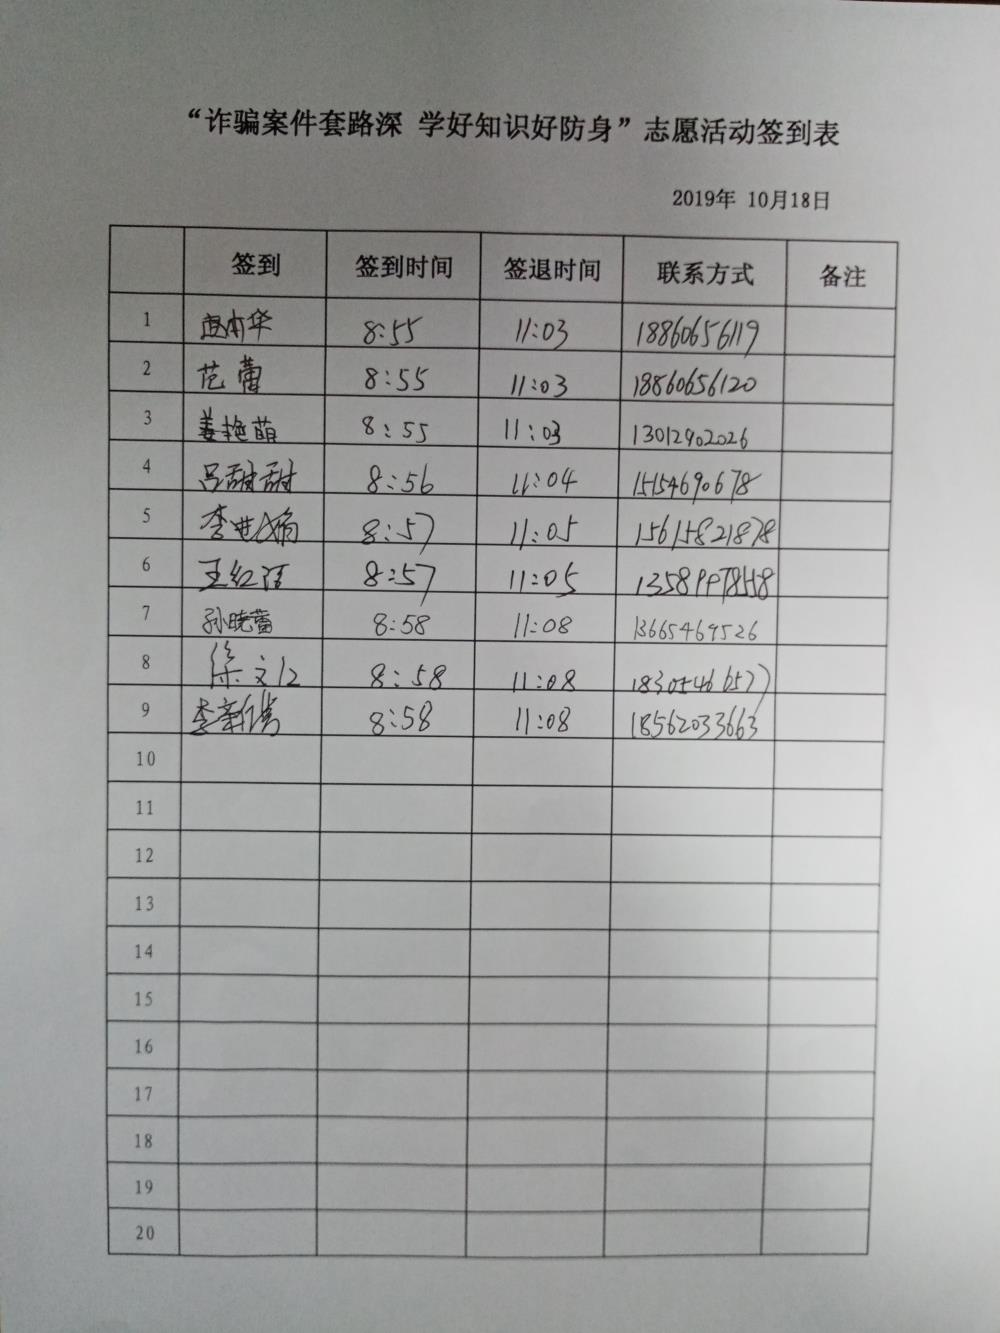 “诈骗案件套路深 学好知识好防身”志愿活动签到表
2019年 10月18日
签到 签到时间 签退时间 联系方式 备注
1 8:55 11:03 18860656119
2 范蕾 8:55 11:03 18860656120
3 姜艳萌 8:55 11:03 13012902026
4 吕甜甜 8:56 11:04 15154690678
5 李 8:57 11:05 15615821878
6 王红 8:57 11:05
7 孙晓蕾 8:58 11:08 13665469526
8 徐文 8:58 11:08 18305466577
9 李新 8:58 11:08 18562033663
10
11
12
13
14
15
16
17
18
19
20